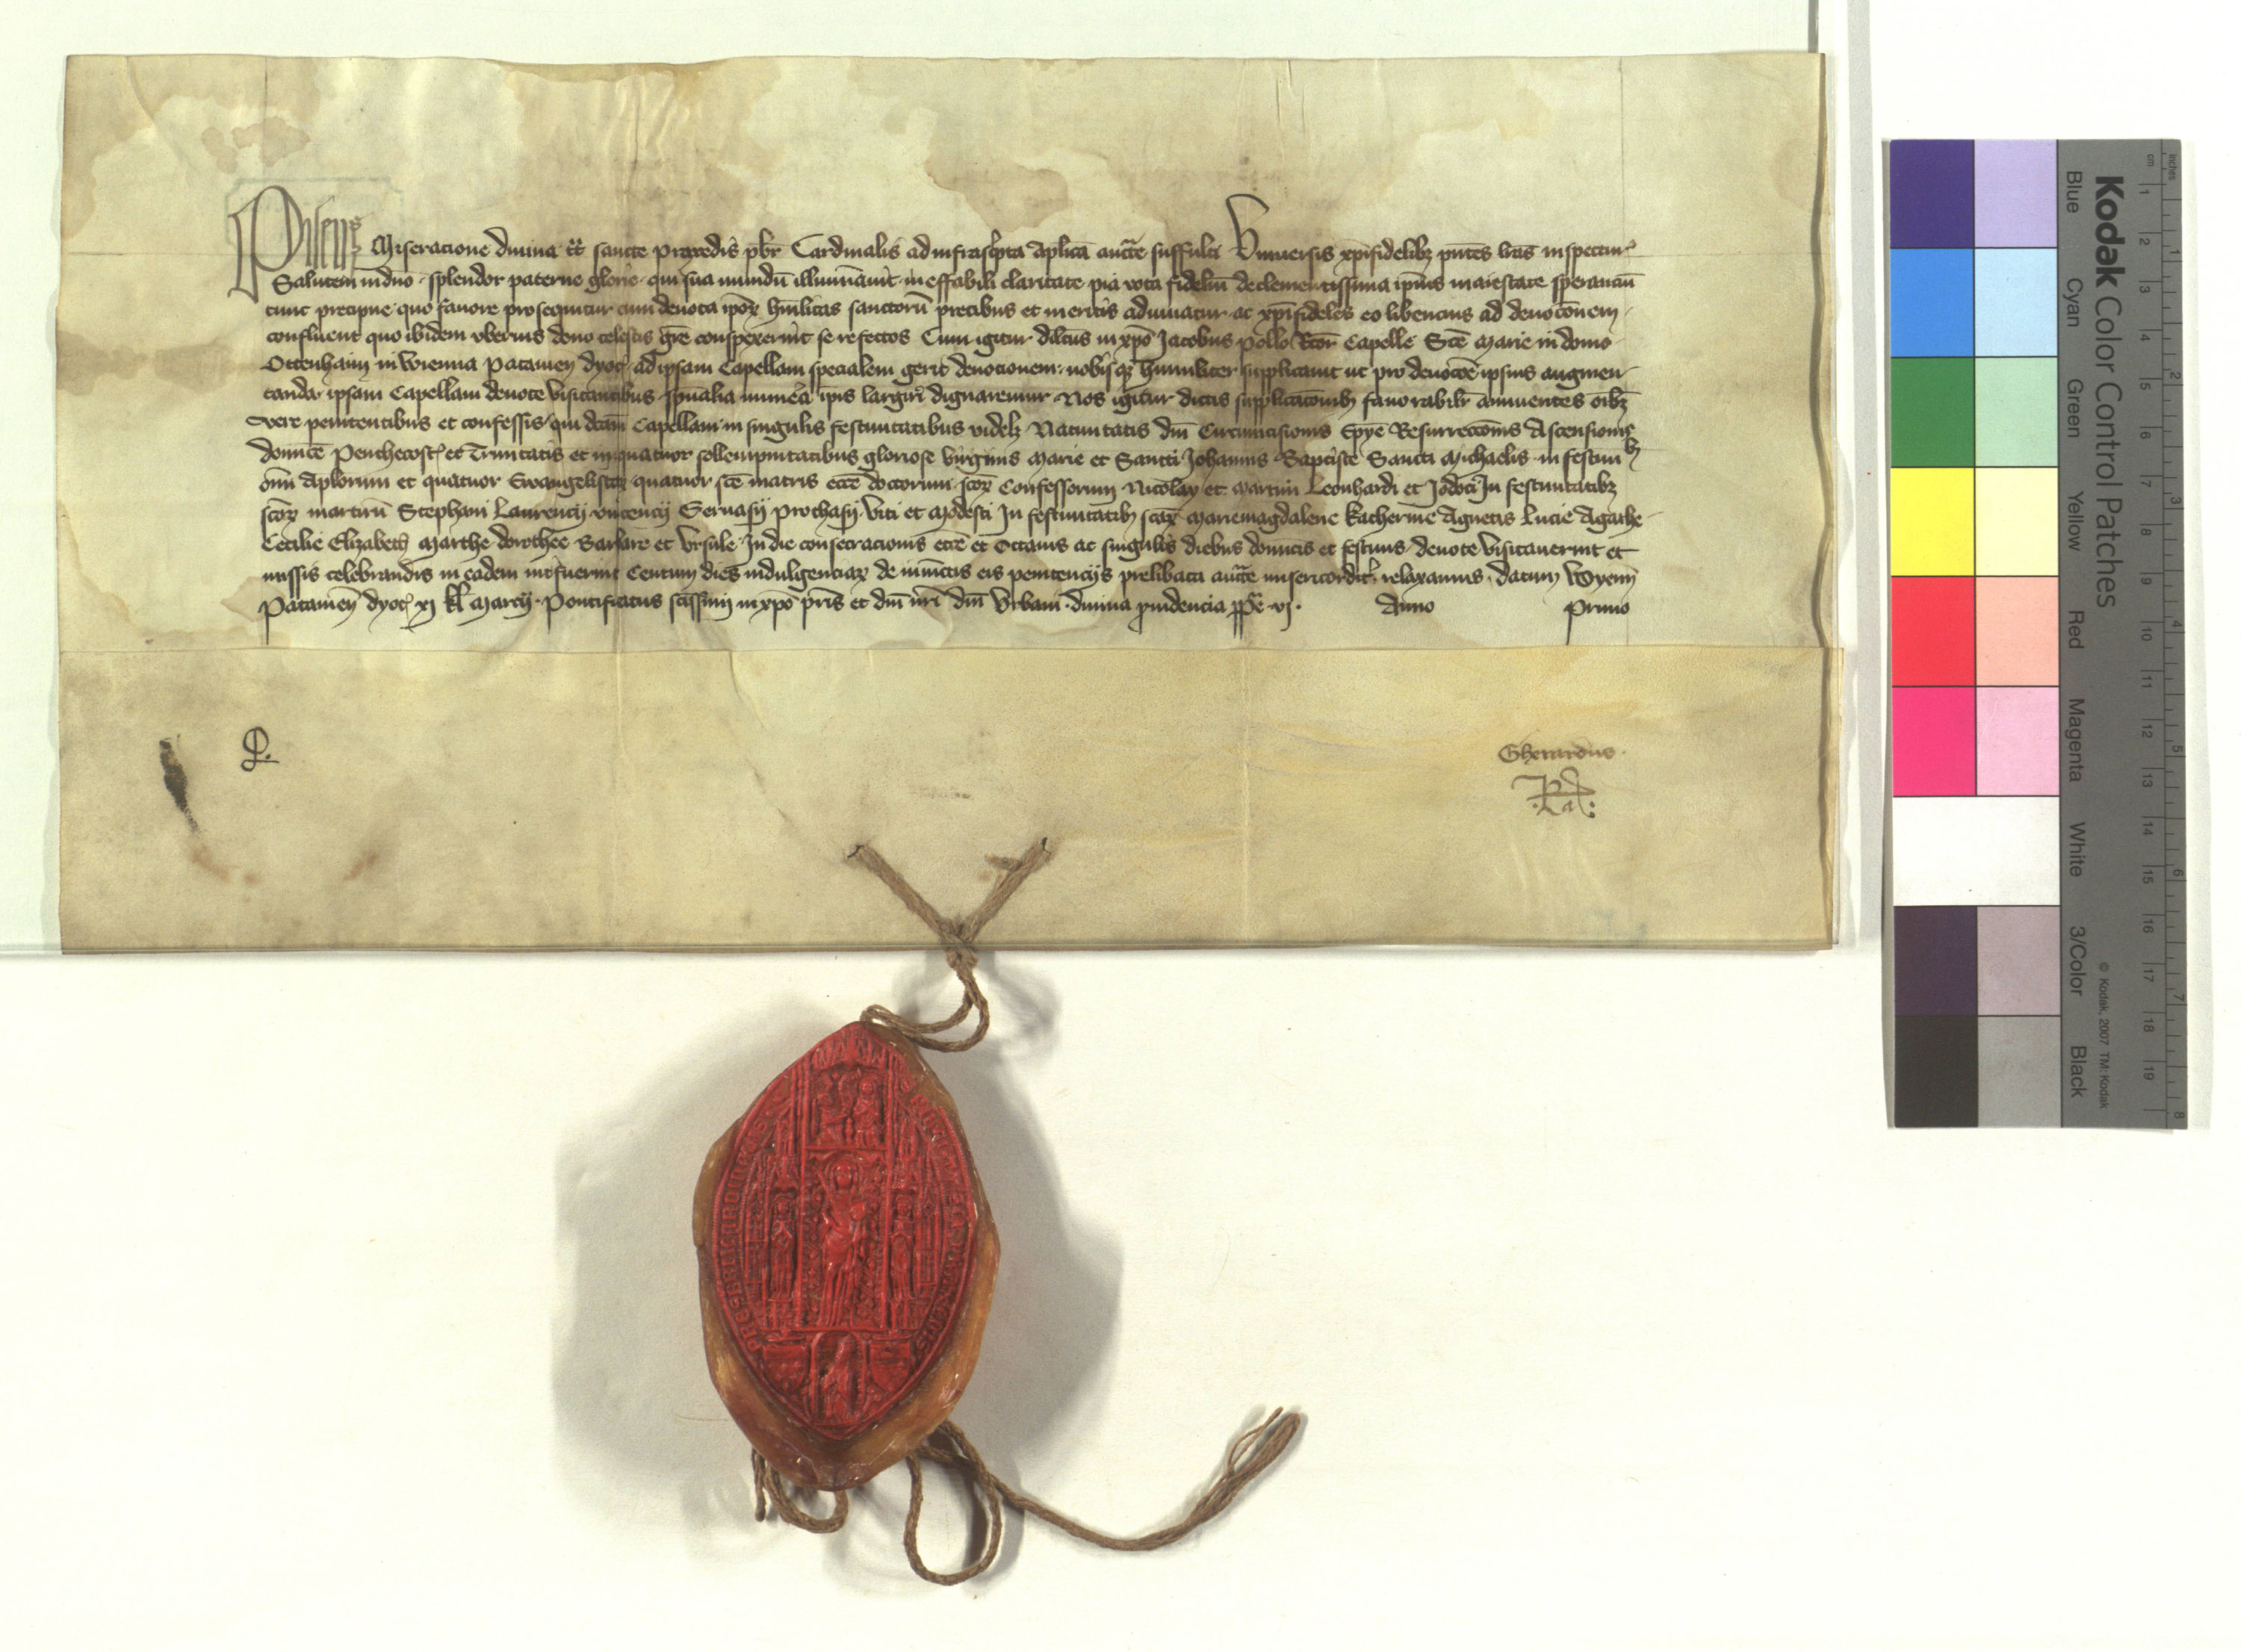 Pileus Miseracione diuina tt sancte praxedis pbr Cardinalis ad infrascpta aplica aucte suffulti Vniuersis xpifidelibz pntes lras inspectur
Salutem in dno splendor paterne glorie qui sua mundu illuminauit ineffabili claritate pia vota fideliu de clementissima ipius maiestate sperantiu
tunc precipue quo fauore prosequitur cum deuota ipoꝝ humilitas sanctoru precibus et meritis adiuuatur ac xpifideles eo libencius ad deuoconem
confluent quo ibidem vberius dono celestis gre conspexerint se refectos Cum igitur dilcus in xpo Jacobus pollo Rtor Capelle Sce Marie in domo
Ottenhaim in Wienna Patauien dyoc ad ipsam Capellam specialem gerit deuocionem nobisqz humiliter supplicauit ut pro deuocoe ipsius augmen
tanda ipsam Capellam deuote visitantibus spualia munera ipis largiri dignaremur Nos igitur dictis supplicacoibz fauorabilr annuentes oibz
vere penitentibus et confessis qui dcam Capellam in singulis festiuitatibus videlz Natiuitatis dni Circumcisionis Epye Resurreccois Ascensionis
donnice Penthecost et Trinitatis et in quatuor sollempnitatibus gloriose virginis Marie et Sancti Johannis Baptiste Sancti Michaelis in festiui
oim Aplorum et quatuor Ewangelistaꝝ quatuor sce matris ecce doctorum scoꝝ Confessorum Nicolay et Martini Leonhardi et Jodoci In festiuitatibz
scoꝝ martiru Stephani Laurencij vincencij Geruasij Prothasij Viti et Modesti In festiuitatibz scaꝝ Mariemagdalene Katherine Agnetis Lucie Agathe
Cecilie Elizabeth Marthe dorothee Barbare et Vrsule In die consecracionis ecce et Octauis ac singulis diebus donnicis et festiuis deuote visitauerint et
missis celebrandis in eadem intfuerint Centum dies indulgenciaꝝ de iniunctis eis penitencijs prelibata aucte misericordit relaxamus datum Wyenn
Patauien dyoc xj kl Marcij Pontificatus scissimi in xpo pris et dni nri dni Vrbani diuina prudencia ppe vj Anno Primo
Gherardus
Ra
Kodak Color Control Patches
© Kodak, 2007 TM: Kodak
Blue Cyan Green Yellow Red Magenta White 3/Color Black
inches 1 2 3 4 5 6 7 8
cm 1 2 3 4 5 6 7 8 9 10 11 12 13 14 15 16 17 18 19